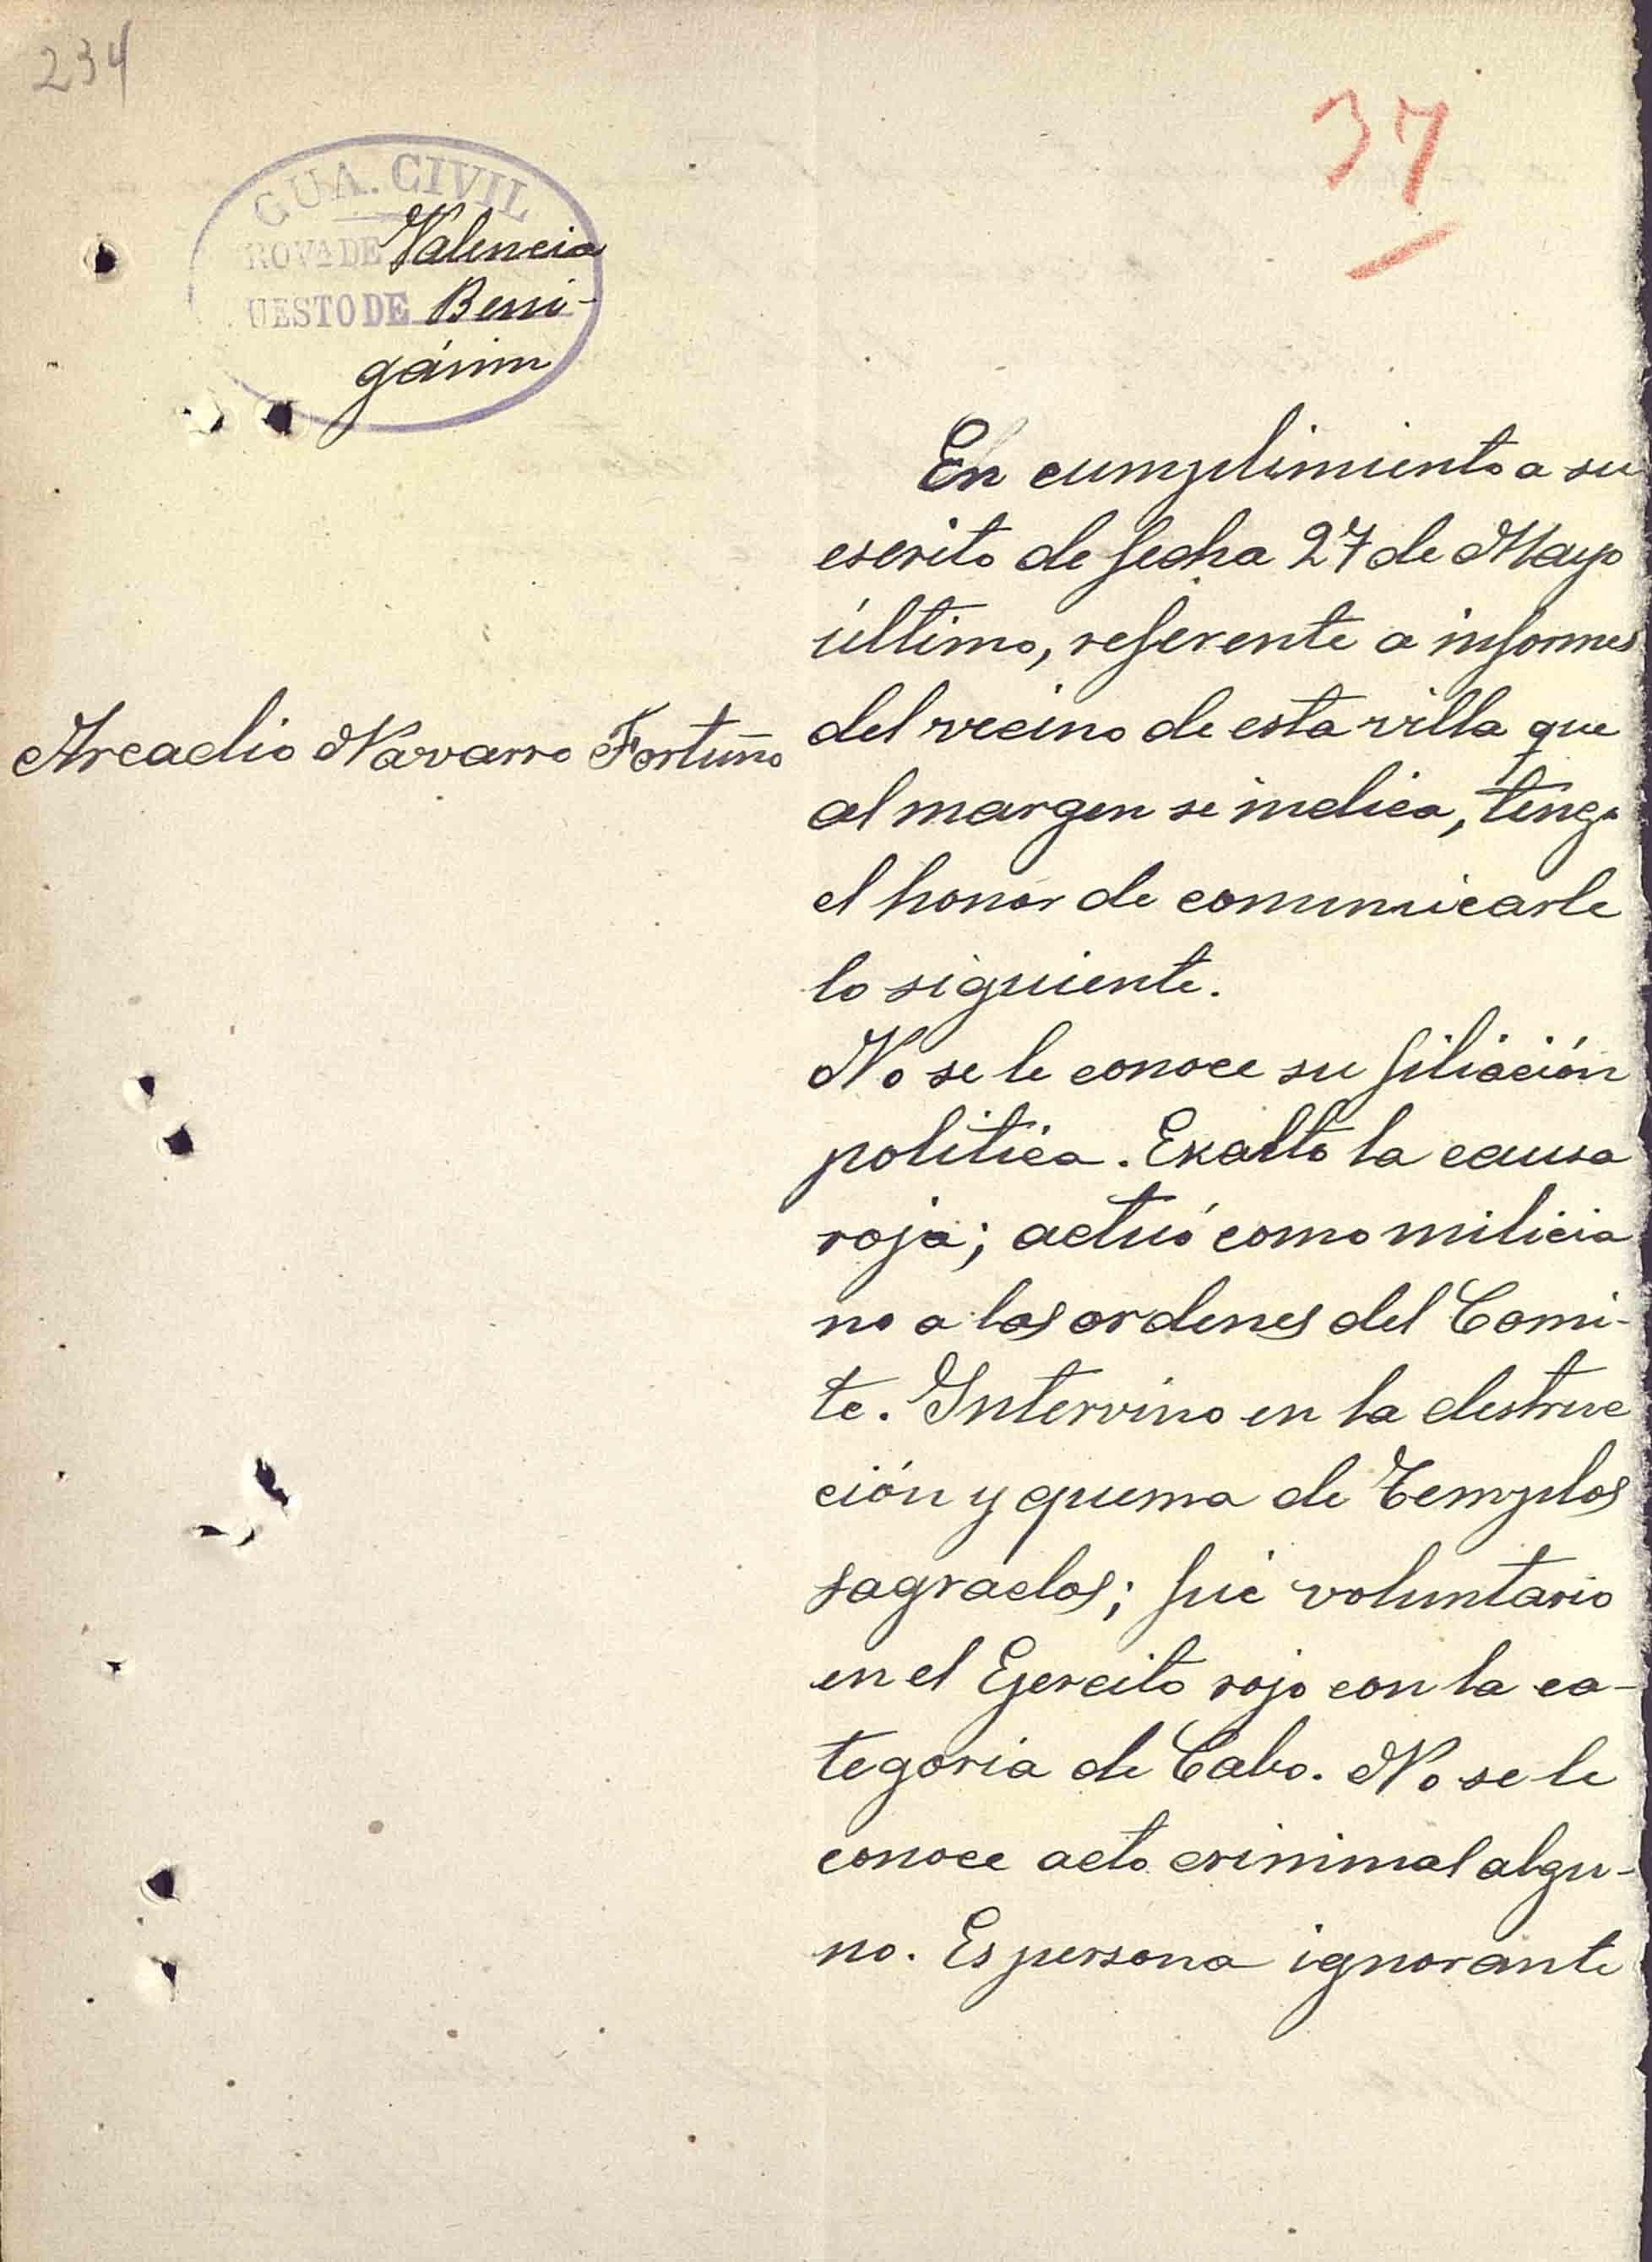 234
37
GUA. CIVIL
ROVA DE Valencia
UESTO DE Beni-
gánim
En cumplimiento a su
escrito de fecha 27 de Mayo
último, referente a informes
del vecino de esta villa que
Arcadio Navarro Fortuño
al margen se indica, tengo
el honor de comunicarle
lo siguiente.
No se le conoce su filiación
politica. Exaltó la causa
roja; actuó como milicia
no a las ordenes del Comi-
te. Intervino en la destruc
ción y quema de Templos
sagrados; fué voluntario
en el Ejercito rojo con la ca-
tegoria de Cabo. No se le
conoce acto criminal algu-
no. Es persona ignorante